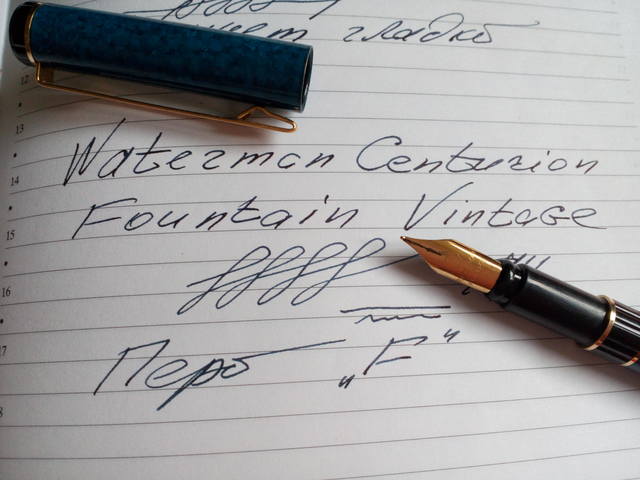 гладко
12
13
Waterman Centurion
14
Fountain Vintage
15
16
17
Перо „F"
8